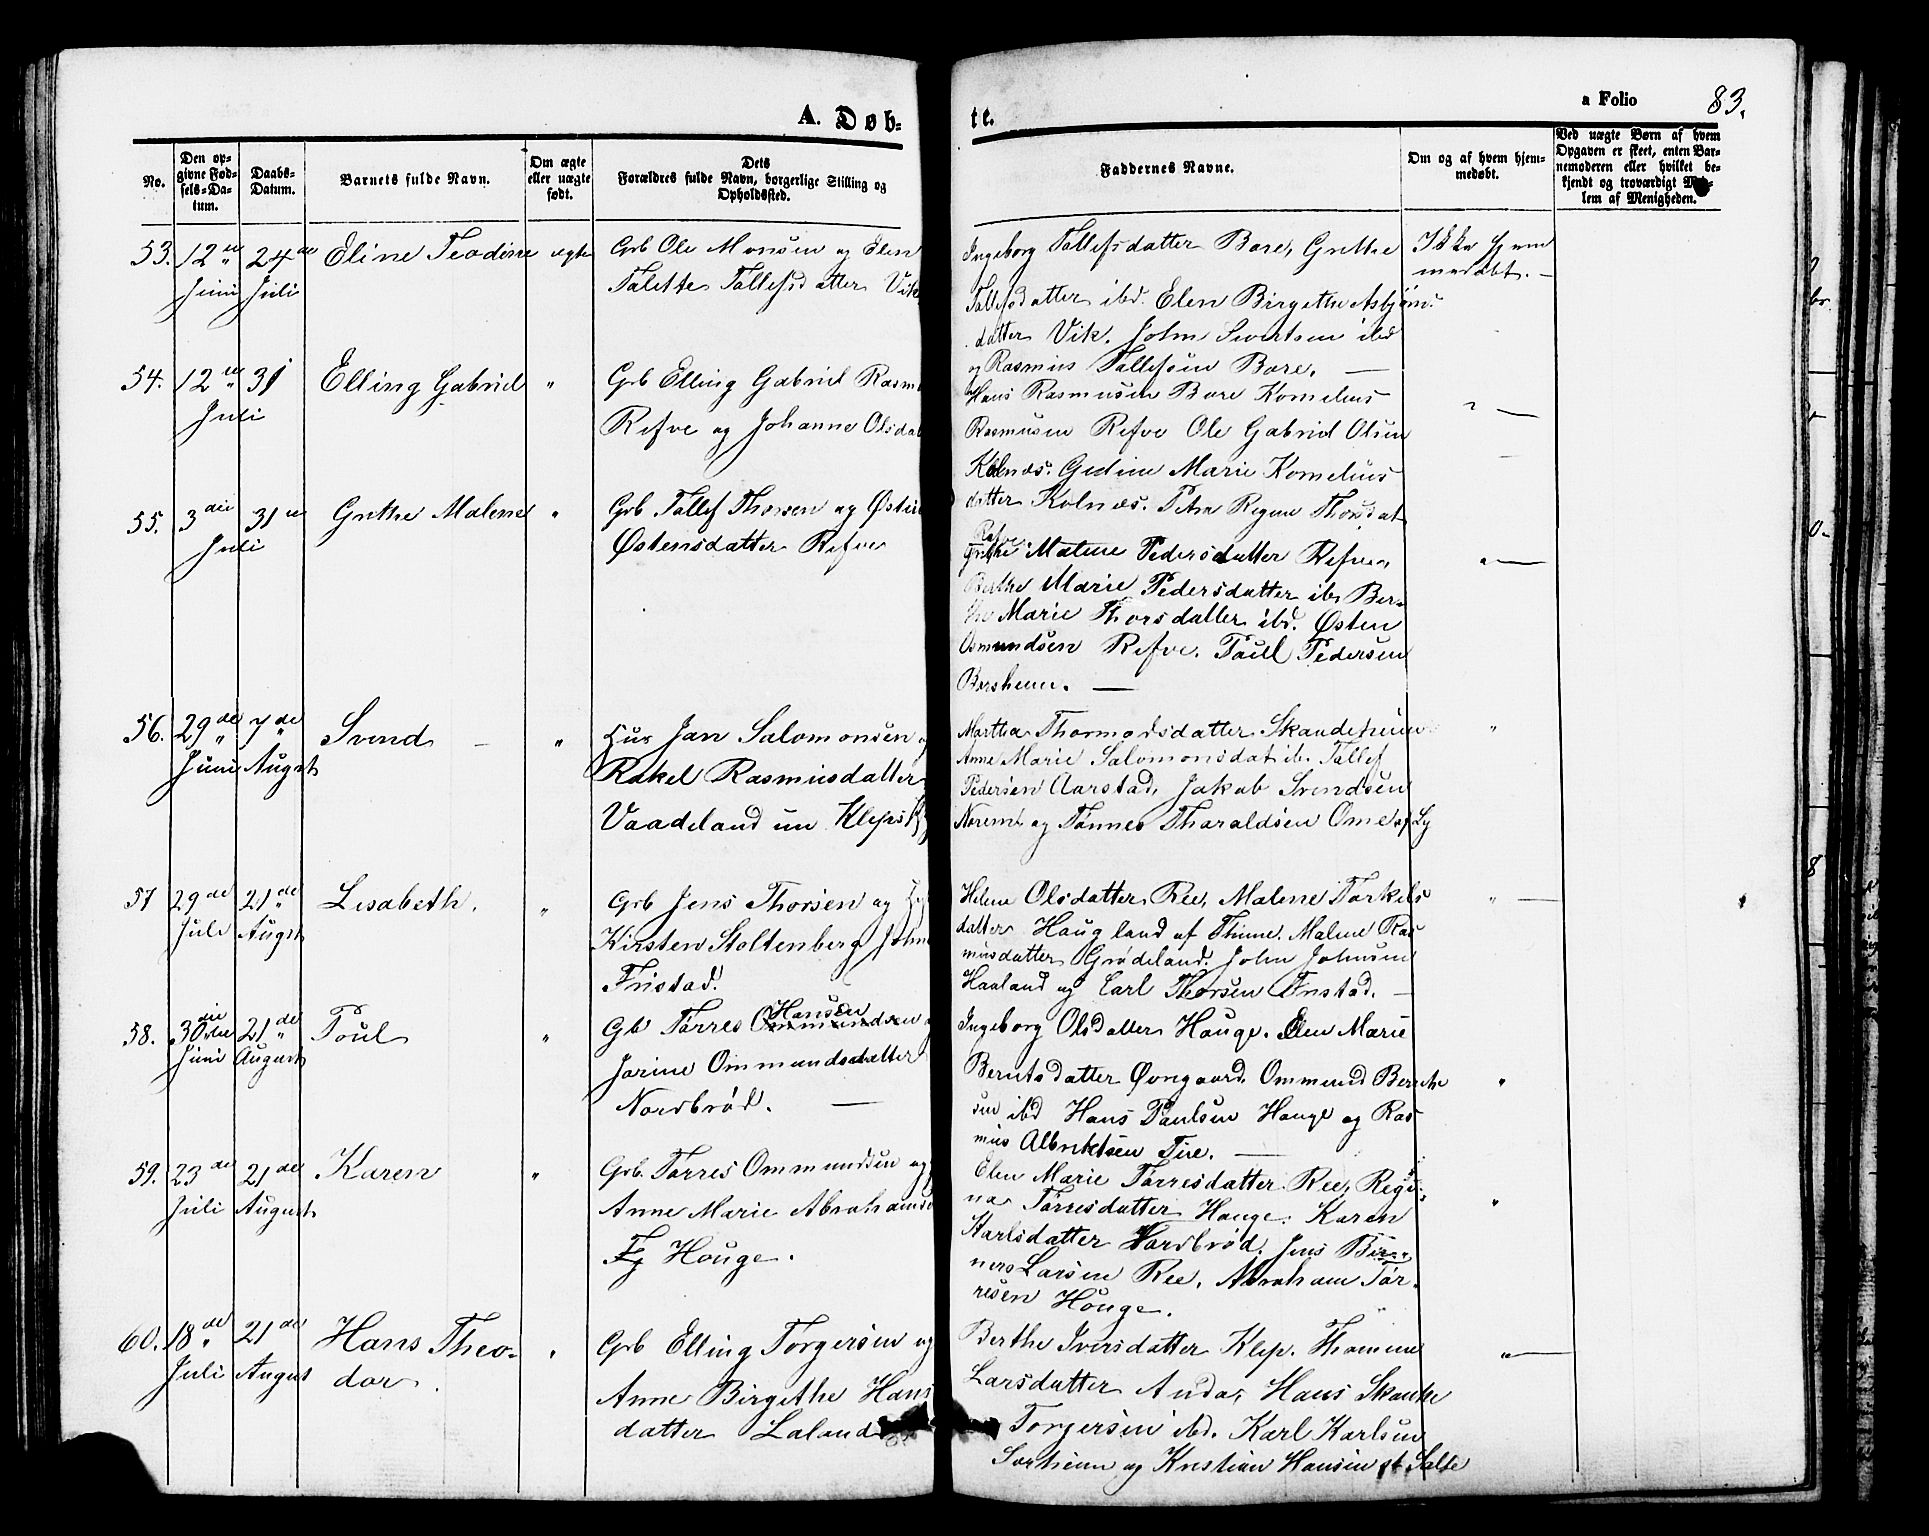 A. Døb-
te.
a Folio 83.
No.
Den op-
givne Fød-
sels-Da-
tum.
Daabs-
Datum.
Barnets fulde Navn.
Om ægte
eller uægte
født.
Dets
Forældres fulde Navn, borgerlige Stilling og
Opholdssted.
Faddernes Navne.
Om og af hvem hjem-
medøbt.
Ved uægte Børn af hvem
Opgaven er skeet, enten Bar-
nemoderen eller hvilket be-
kjendt og troværdigt Med-
lem af Menigheden.
53. 12 24 Eline Teodine ægte Grb Ole Monsen og Elen
Juni Juli Talette Tollefsdatter Vik
Ingeborg Tollefsdatter Bore, Grethe Ikke hjem
medøbt. —
Tollefsdatter ibd. Elen Birgethe Asbjørns
datter Vik. John Sivertsen ibd
og Rasmus Tollefsen Bore. —
54. 12 31 Elling Gabriel " Grb Elling Gabriel Rasm
Juli Refve og Johanne Olsdat
Hans Rasmusen Bore Kornelius " —
Rasmusen Refve Ole Gabriel Olsen
Kolnæs. Marie Kornelius
datter Kolnæs. Regine Thorsdat
Refve
55. 3die 31 Grethe Malene " Grb Tollef Thorsen og
Juli Østensdatter Refve
Grethe Malene Pedersdatter Refve, " —
Berthe Marie Pedersdatter ib. Ber-
the Marie Thorsdatter ibd. Østen
Osmundsen Refve. Poul Pedersen
Borsheim. —
56. 29de 7de Svend — " Hus Jan Salomonsen og
Juni August Rakel Rasmusdatter
Vaadeland un Kleps
Martha Thormodsdatter "
Anne Marie Salomonsdat ib. Tollef
Pedersen Aarstad, Jakob Svendsen
Norem og Tønnes Tharaldsen Ome af Ly
57 29de 21de Lisabeth. " Grb Jens Thorsen og
Juli August Kirsten Stoltenberg
Fristad.
Helene Olsdatter Ree, Malene Torkels " —
datter Haugland af Thime. Malene Ras
musdatter Grødeland. John Johnsen
Haaland og Carl Thorsen Fristad. —
58. 30 21de Poul " Gb Tørres Ommundsen Hansen og
Juni August Jorine Ommundsdatter
Nordbrød. —
Ingeborg Olsdatter Hauge. Elen Marie
Berntsdatter Øvregaard. Ommund Bernt "
sen ibd Hans Paulsen Hauge og Ras
mus Albrektsen Tue. —
59. 23de 21de Karen " Grb. Tørres Ommundsen og
Juli August Anne Marie Abrahams
Fg Houge.
Elen Marie Tørresdatter Ree, Regi
na Tørresdatter Hauge. Karen "
Karlsdatter Nordbrød. Jens
Larsen Ree. Abraham Tør-
resen Houge.
60. 18de 21de Hans Theo- " Grb Elling Torgersen og
Juli August dor. Anne Birgithe Hans
datter Laland
Berthe Iversdatter Klep. Thomine " —
Larsdatter Anda, Hans
Torgersen ibd. Karl Karlsen
Sorheim og Kristian Hansen st. Salte